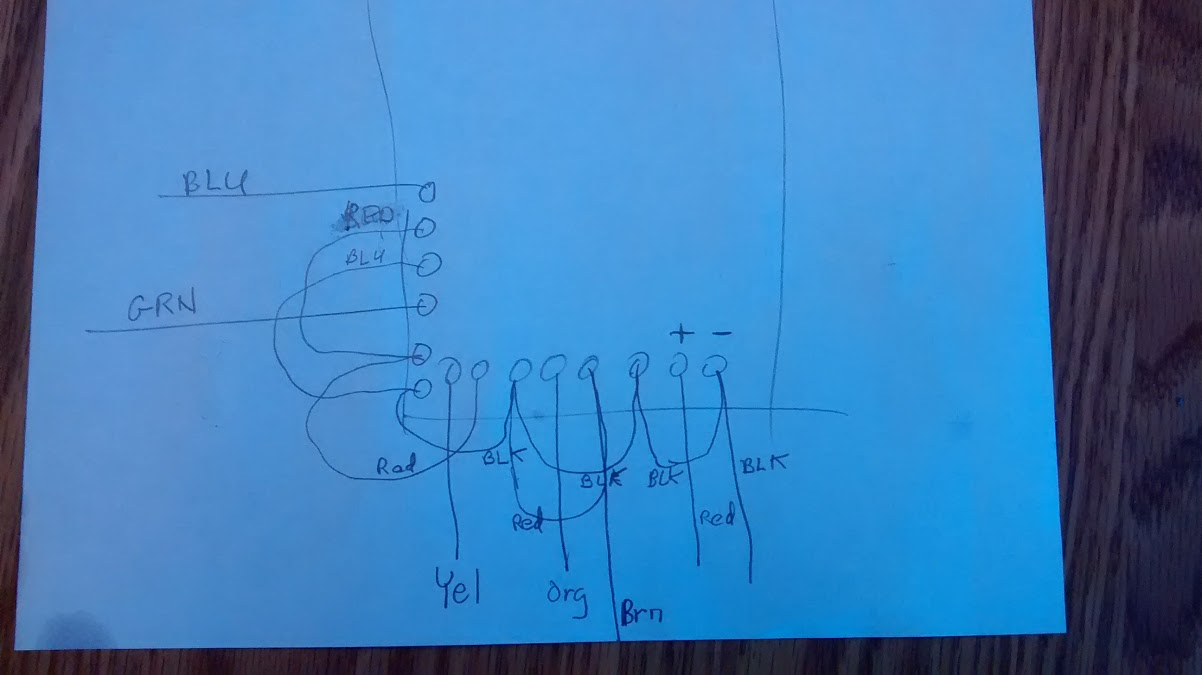 BLU
RED
BLU
GRN
+ -
Red
BLK
BLK
BLK
BLK
Red
Red
Yel
Org
Brn